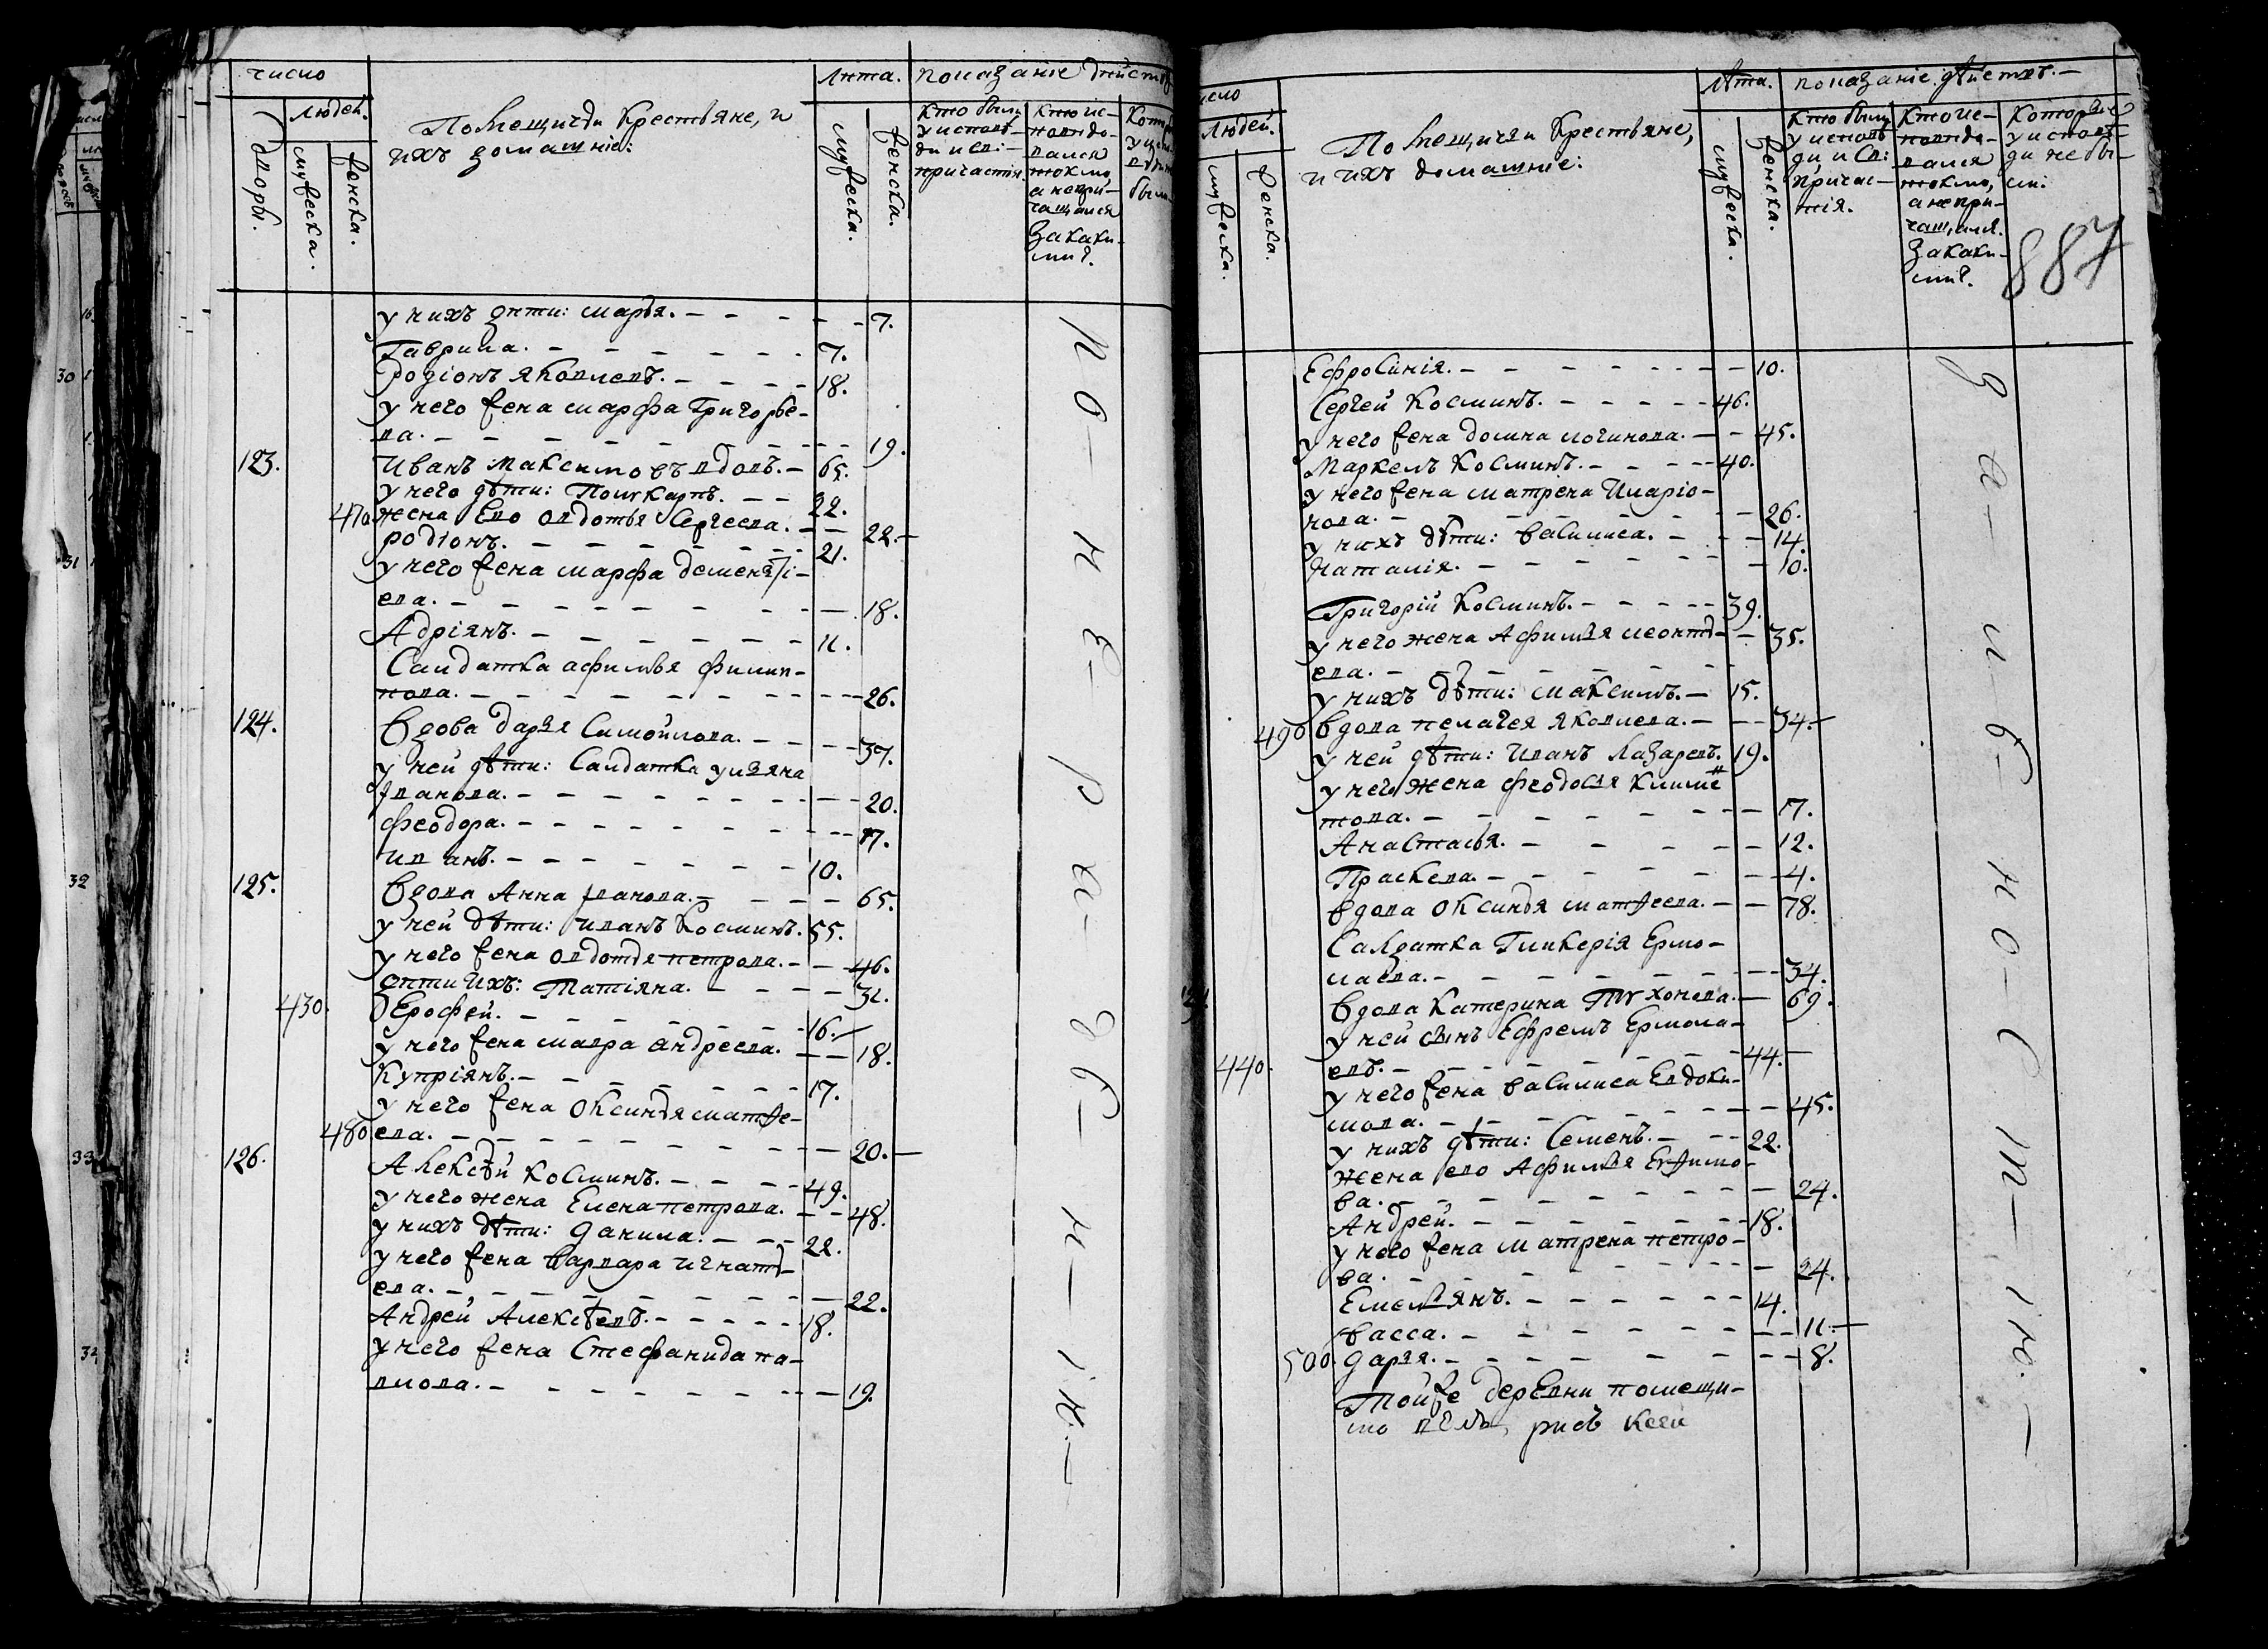 число
людей.
дворы.
мужеска.
женска.
Помещичьи крестьяне, и
ихъ домашнiе:
Лѣта.
мужеска.
женска.
показанiе дѣйств
кто были
у исповѣ-
ди и св:
причастия
кто ис-
поведо-
вался
токмо,
а непри-
чащался
за каки-
ми?
у нихъ дѣти: марья. 7.
Гаврила. 7.
родионъ яковлевъ. 18.
у него жена марфа Григорье-
ва. 19.
123. Иванъ максимовъ вдовъ. 65.
у него дѣти: Поликарпъ. 22.
470 жена Ево овдотья Сергеева. 22.
родiонъ. 21.
у него жена марфа дементi-
ева. 18.
Адрiянъ. 11.
Салдатка афимья филип-
пова. 26.
124. Вдова дарья Самойлова. 37.
у ней дѣти: Салдатка ульяна
Иванова. 20.
феодора. 17.
иванъ. 10.
125. Вдова Анна Iванова. 65.
у ней дѣти: иванъ Косминъ. 55.
у него жена овдотья петрова. 46.
дѣти ихъ: Татiяна. 31.
430. Ерофей. 16.
у него жена мавра андреева. 18.
Купрiянъ. 17.
у него жена оксинья матфе-
480 ева. 20.
126. Алексѣй Косминъ. 49.
у него жена Елена петрова. 48.
у нихъ дѣти: данила. 22.
у него жена варвара игнать-
ева. 22.
Андрей Алексѣевъ. 18.
у него жена Стефанида па-
влова. 19.
число
людей.
мужеска.
женска.
Помещичьи крестьяне,
и ихъ домашнiе:
Лѣта.
мужеска.
женска.
показанiе дѣйствъ.
кто были
у исповѣ
ди и св:
причас-
тiя.
кто ис-
поведо-
вался
токмо,
а непри-
чащался.
за каки-
ми?
которые
у исповѣ-
ди не бы-
ли:
887
Ефросинiя. 10.
Сергей Косминъ. 46.
у него жена домна логинова. 45.
Маркелъ Косминъ. 40.
у него жена матрена Иларiо-
нова. 26.
у нихъ дѣти: василиса. 14.
Наталiя. 10.
Григорiй Косминъ. 39.
у него жена Афимья леонть- 35.
ева.
у нихъ дѣти: максимъ. 15.
490 вдова пелагея яковлева. 34.
у ней дѣти: Иванъ Лазаревъ. 19.
у него жена феодосья климе
това. 17.
Анастасья. 12.
Праскева. 4.
вдова оксинья матфеева. 78.
Салдатка Гликерiя Ермо-
лаева. 34.
вдова катерина Тихонова. 69.
у ней сынъ Ефремъ Ермола-
440. евъ. 44.
у него жена василиса Евдоки-
мова. 45.
у нихъ дѣти: Семенъ. 22.
жена ево Афимья Ефимо-
ва. 24.
Андрей. 18.
у него жена матрена петро-
ва. 24.
Емельянъ. 14.
васса. 11.
500. дарья. 8.
Тойже деревни помещи-